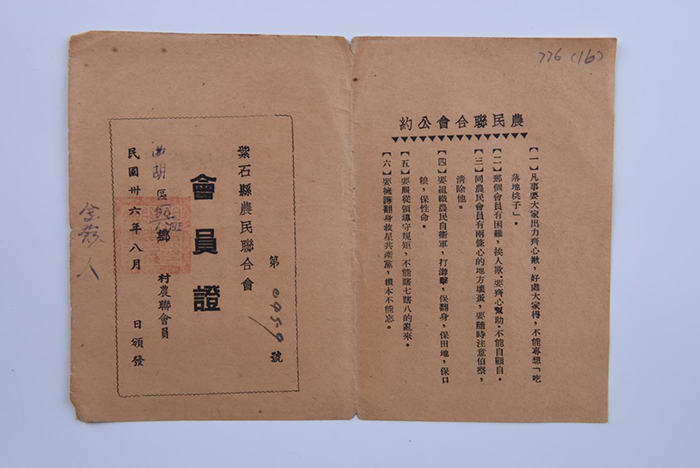 776（16）
農民聯合會公約
【一】凡事要大家出力齊心瞅，好處大家得，不能專想「吃
落地桃子」。
【二】那個會員有困難，挨人欺，要齊心幫助，不能自顧自。
【三】同農民會員有兩條心的地方壞蛋，要隨時注意偵察，
清除他。
【四】要組織農民自衛軍，打游擊，保翻身，保田地，保口
糧，保性命。
【五】要服從領導守規矩，不能瞎七瞎八的亂來。
【六】要擁護翻身救星共產黨，根本不能忘。
第0959號
紫石縣農民聯合會
會員證
曲胡區鄉村農聯會員
民國卅六年八月日頒發